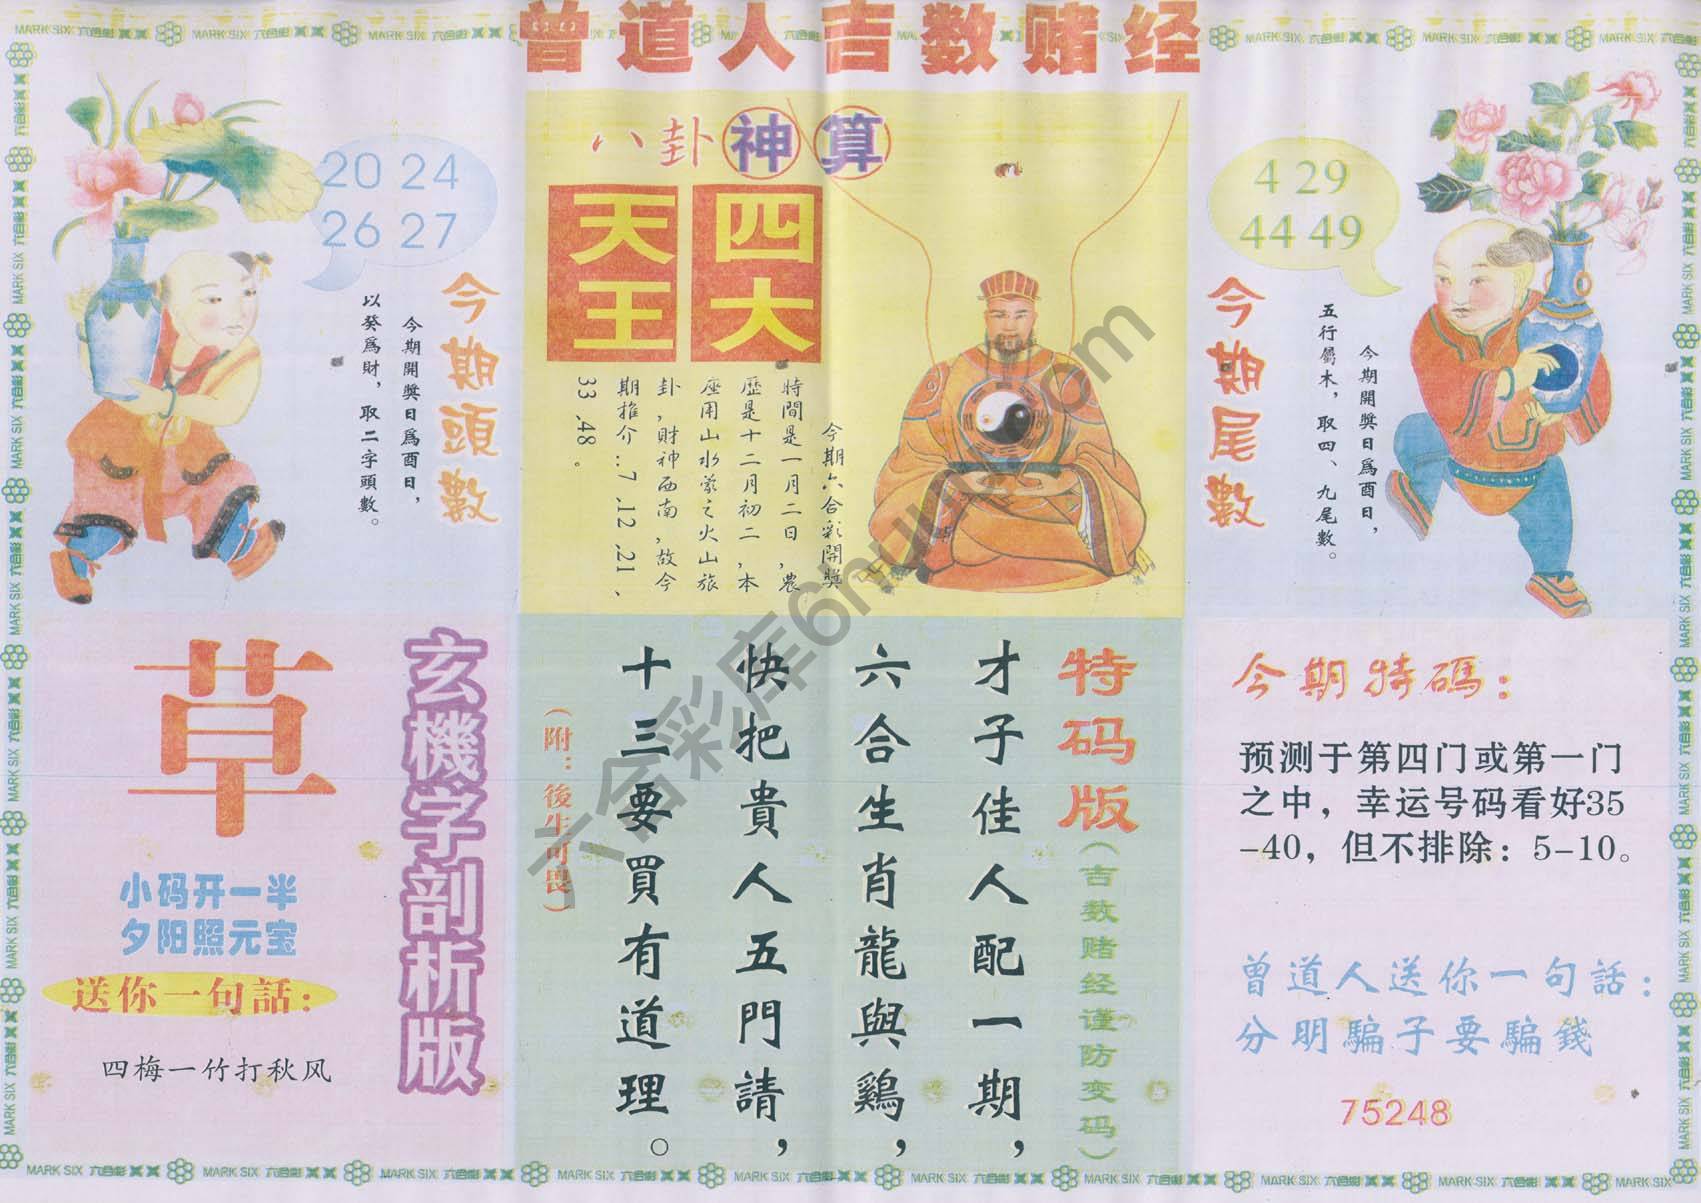 曾道人吉数赌经
MARK SIX 六合彩
20 24
26 27
今期頭數
今期開獎日為酉日，
以癸為財，取二字頭數。
八卦神算
四大
天王
今期六合彩開獎
時間是一月二日,農
歷是十二月初二,本
座用山水蒙之火山旅
卦,財神西南,故今
期推介:7.12.21、
33.48。
4 29
44 49
今期尾數
今期開獎日為酉日，
五行屬木，取四、九尾數。
玄機字剖析版
草
小码开一半
夕阳照元宝
送你一句話：
四梅一竹打秋风
特码版（吉数赌经谨防变码）
才子佳人配一期，
六合生肖龍與鷄，
快把貴人五門請，
十三要買有道理。
（附：後生可畏）
今期特碼：
预测于第四门或第一门
之中，幸运号码看好35
-40，但不排除：5-10。
曾道人送你一句話：
分明騙子要騙錢
75248
六合彩库6htuku.com